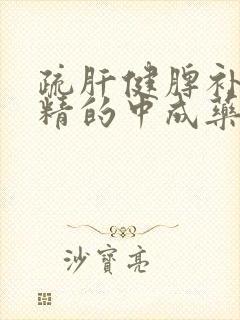 疏肝健脾补
精的中成藥
沙寶亮